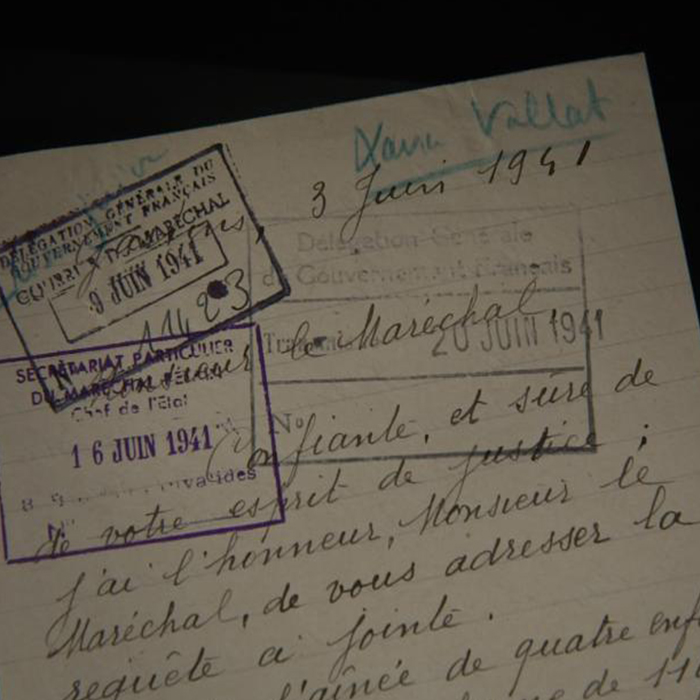 Xavier Vallat
3 Juin 1941
DÉLÉGATION GÉNÉRALE DU
GOUVERNEMENT FRANÇAIS
DU MARÉCHAL
9 JUIN 1941
1423
Délégation Générale
du Gouvernement Français
20 JUIN 1941
N°
SECRÉTARIAT PARTICULIER
DU MARÉCHAL PÉTAIN
Chef de l'Etat
16 JUIN 1941
Invalides
N°
Monsieur le Maréchal,
Confiante, et sûre de
votre esprit de justice ;
j'ai l'honneur, Monsieur le
Maréchal, de vous adresser la
requête ci jointe.
l'aînée de quatre enf
de 11